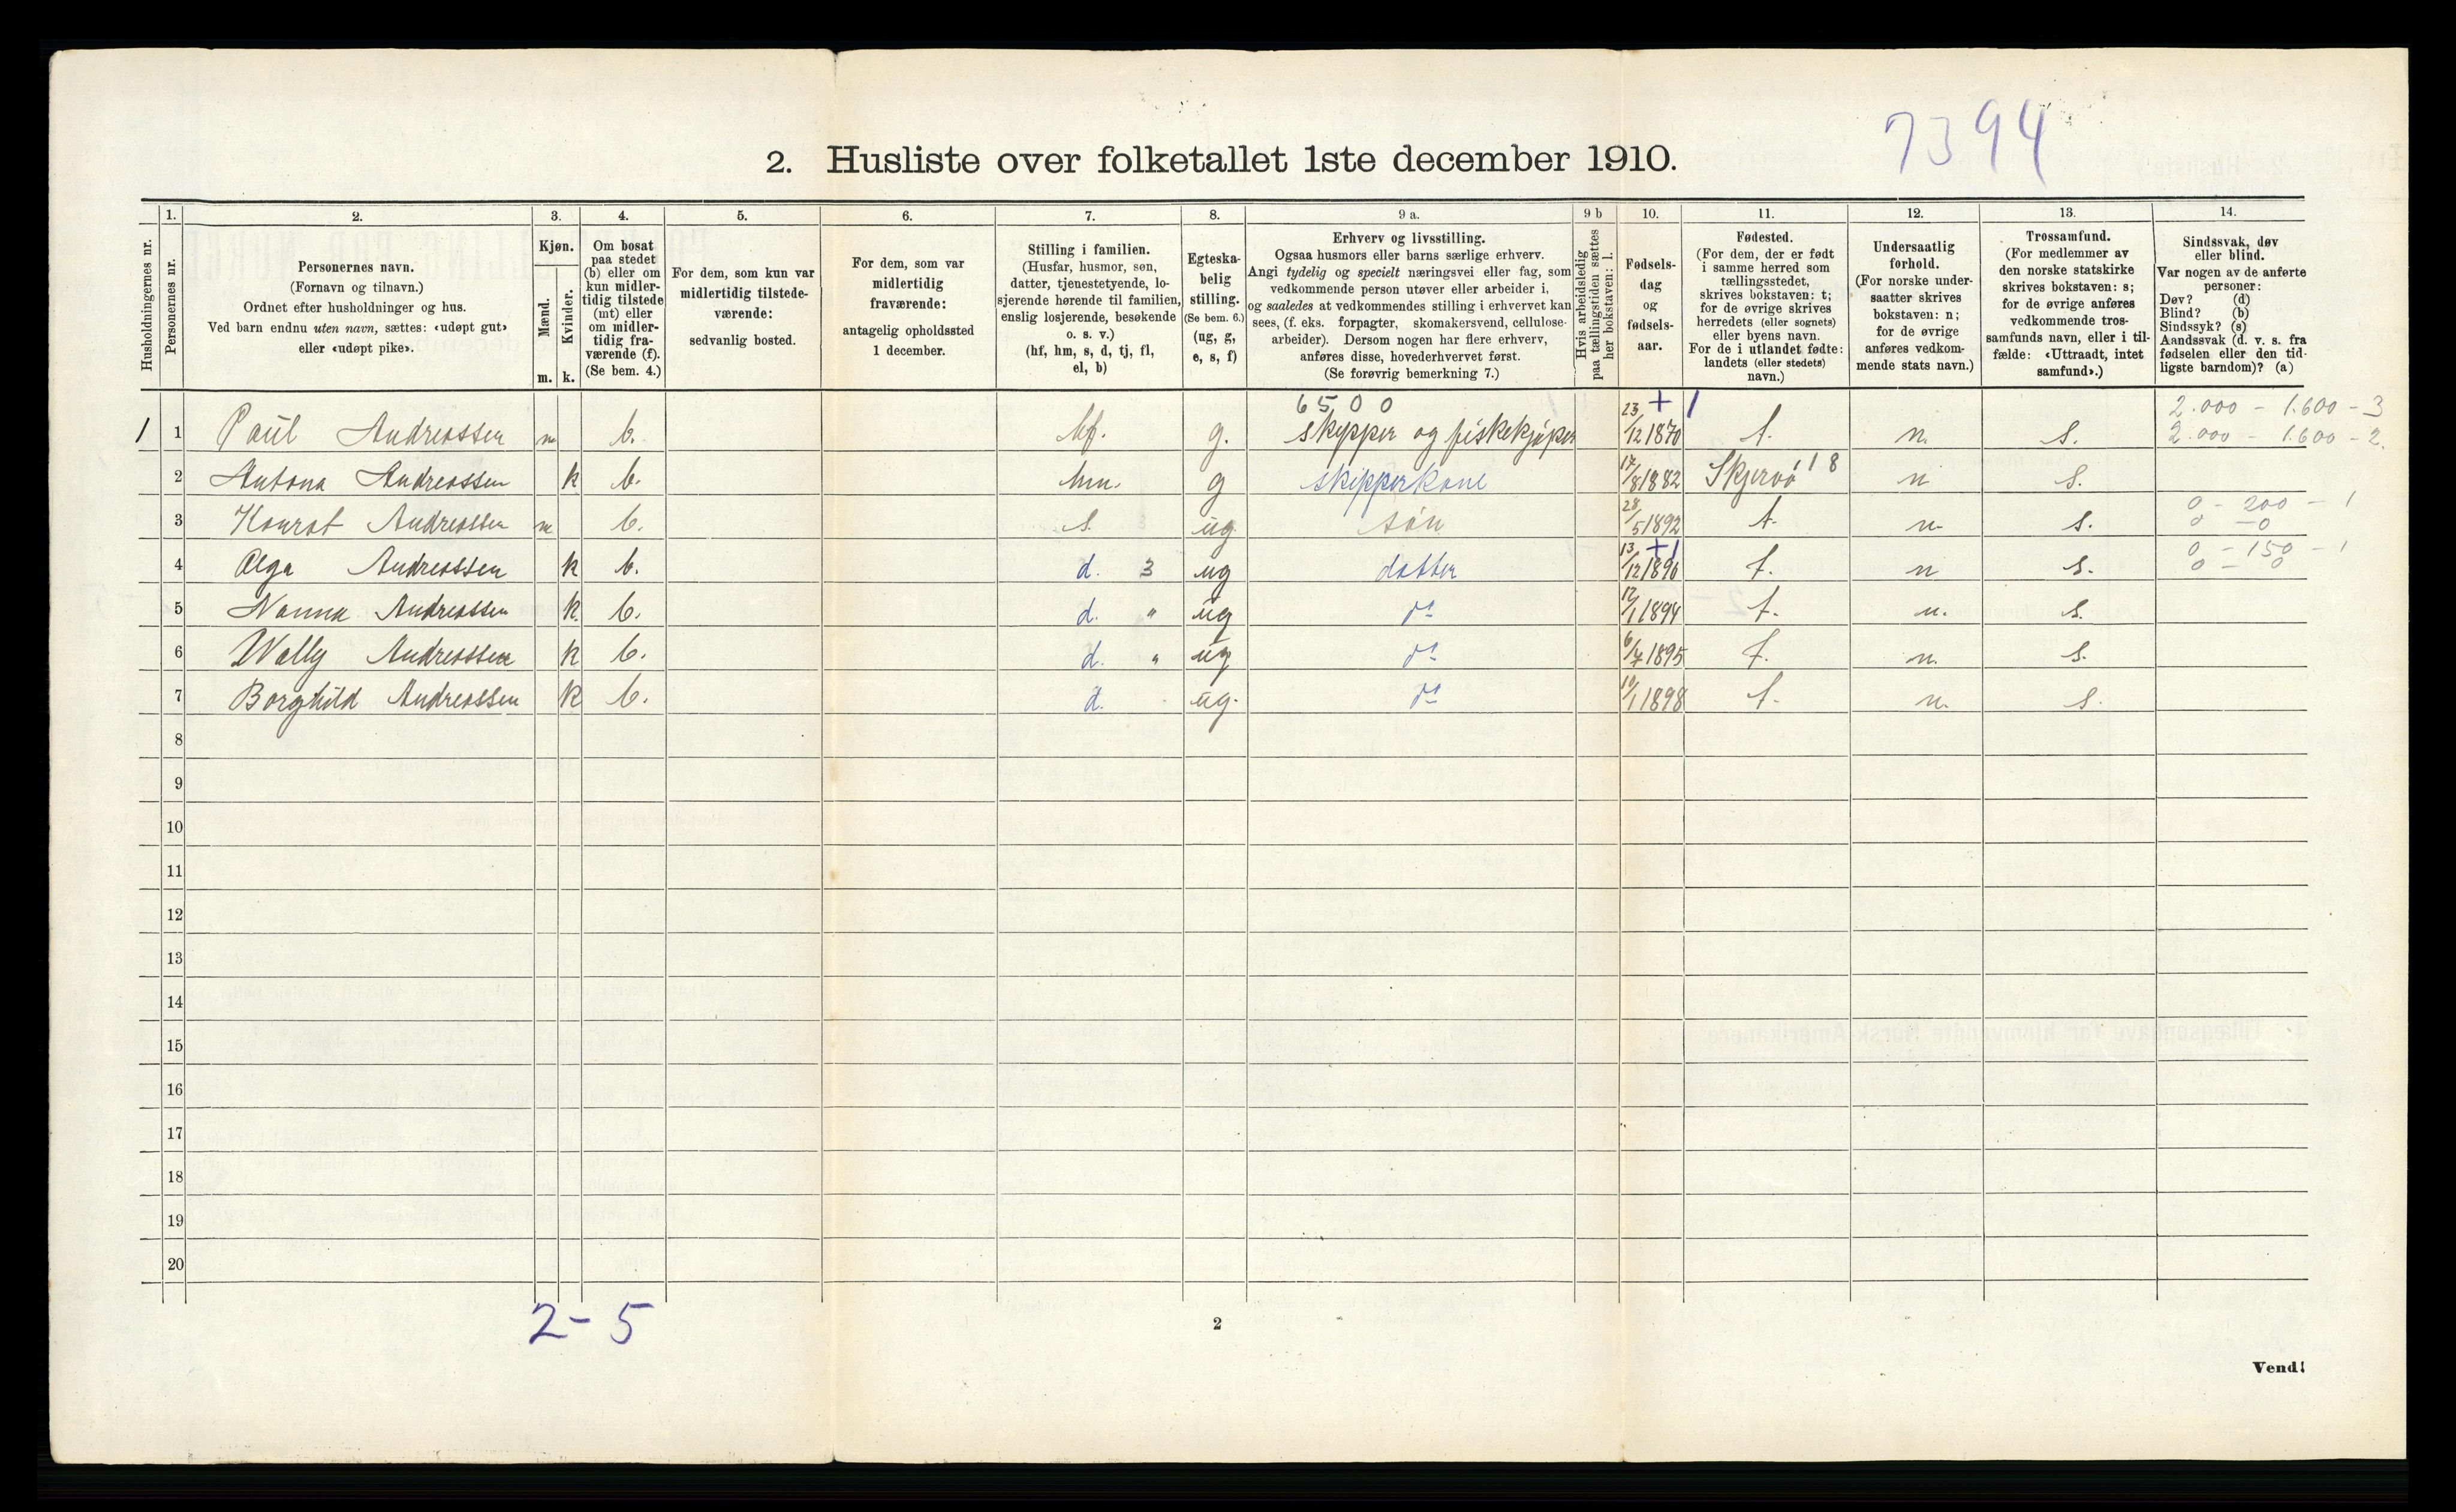 7394
2. Husliste over folketallet 1ste december 1910.
Husholdningernes nr.
1.
Personernes nr.
2.
Personernes navn.
(Fornavn og tilnavn.)
Ordnet efter husholdninger og hus.
Ved barn endnu uten navn, sættes: «udøpt gut»
eller «udøpt pike».
3.
Kjøn.
Mænd.
Kvinder.
m. k.
4.
Om bosat
paa stedet
(b) eller om
kun midler-
tidig tilstede
(mt) eller
om midler-
tidig fra-
værende (f).
(Se bem. 4.)
5.
For dem, som kun var
midlertidig tilstede-
værende:
sedvanlig bosted.
6.
For dem, som var
midlertidig
fraværende:
antagelig opholdssted
1 december.
7.
Stilling i familien.
(Husfar, husmor, søn,
datter, tjenestetyende, lo-
sjerende hørende til familien,
enslig losjerende, besøkende
o. s. v.)
(hf, hm, s, d, tj, fl,
el, b)
8.
Egteska-
belig
stilling.
(Se bem. 6.)
(ug, g,
e, s, f)
9 a.
Erhverv og livsstilling.
Ogsaa husmors eller barns særlige erhverv.
Angi tydelig og specielt næringsvei eller fag, som
vedkommende person utøver eller arbeider i,
og saaledes at vedkommendes stilling i erhvervet kan
sees, (f. eks. forpagter, skomakersvend, cellulose-
arbeider). Dersom nogen har flere erhverv,
anføres disse, hovederhvervet først.
(Se forøvrig bemerkning 7.)
9 b
Hvis arbeidsledig
paa tællingstiden sættes
her bokstaven: l.
10.
Fødsels-
dag
og
fødsels-
aar.
11.
Fødested.
(For dem, der er født
i samme herred som
tællingsstedet,
skrives bokstaven: t;
for de øvrige skrives
herredets (eller sognets)
eller byens navn.
For de i utlandet fødte:
landets (eller stedets)
navn.)
12.
Undersaatlig
forhold.
(For norske under-
saatter skrives
bokstaven: n;
for de øvrige
anføres vedkom-
mende stats navn.)
13.
Trossamfund.
(For medlemmer av
den norske statskirke
skrives bokstaven: s;
for de øvrige anføres
vedkommende tros-
samfunds navn, eller i til-
fælde: «Uttraadt, intet
samfund».)
14.
Sindssvak, døv
eller blind.
Var nogen av de anførte
personer:
Døv? (d)
Blind? (b)
Sindssyk? (s)
Aandssvak (d. v. s. fra
fødselen eller den tid-
ligste barndom)? (a)
6500 + 1 2.000 - 1.600 - 3
1 1 Paul Andreassen m b. hf. g. skipper og fiskekjøper 23/12 1870 t. n. s. 2.000 - 1.600 - 2.
2 Antona Andreassen k b. hm. g skipperkone 17/8 1882 Skjervø 18 n s.
3 Konrat Andreassen m b. s. ug søn 28/5 1892 t. n. s. 0 - 200 - 1
0 - 0
4 Olga Andreassen k b. d. 3 ug datter 13/12 1896 + 1 t. n s. 0 - 150 - 1
0 - 0
5 Nanna Andreassen k. b. d. " ug do 12/1 1894 t. n. s.
6 Wally Andreassen k b. d. " ug do 6/4 1895 t. n. s.
7 Borghild Andreassen k b. d. ug. do 10/1 1898 t. n. s.
8
9
10
11
12
13
14
15
16
17
18
19
20
2 - 5
2
Vend!